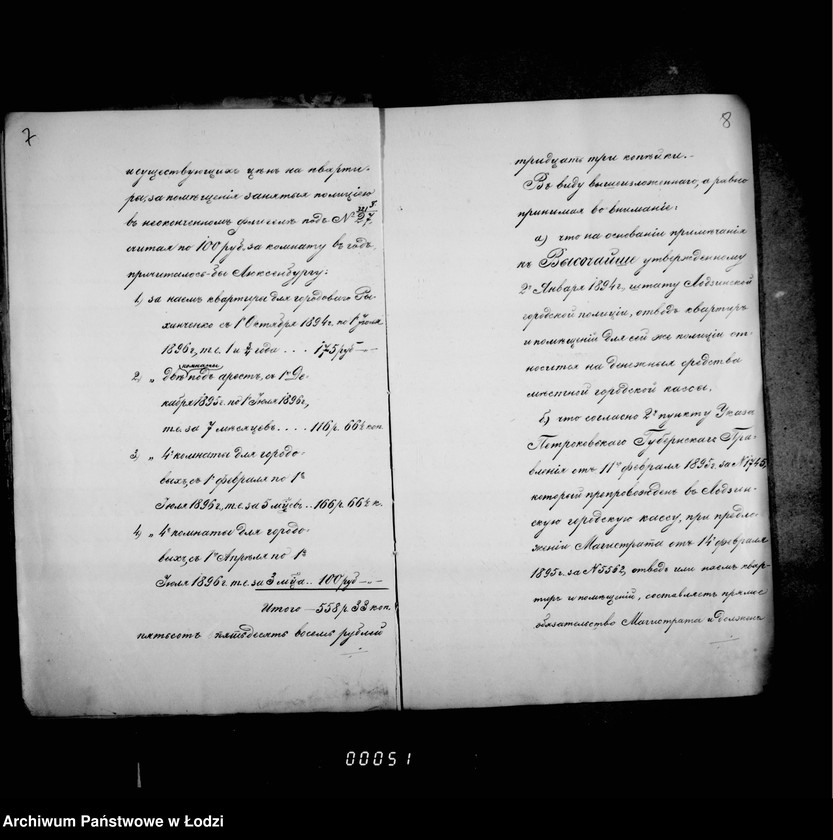 7
и существующихъ цѣнъ на кварти-
ры, за помѣщенія занятыя полиціею
въ неоконченномъ домѣ подъ №
27,
считая по 100 руб. за комнату въ годъ,
причиталось-бы Люксенбургу:
1, за наемъ квартиры для городоваго Ры-
ханченко съ 1го Октября 1894г. по 1е Іюля
1896г., т.е. 1 и ¾ года . . . 175 руб -"-
2, " двѣ комнаты подъ арестъ, съ 1го Де-
кабря 1895г. по 1е Іюля 1896г.,
т.е. за 7 мѣсяцевъ. . . . 116 р. 66⅔ коп.
3, " 4е комнаты для городо-
выхъ, съ 1го февраля по 1е
Іюля 1896г., т.е. за 5 м-цевъ . . 166 р. 66⅔ к.
4, " 4е комнаты для городо-
выхъ, съ 1го Апрѣля по 1е
Іюля 1896г. т.е. за 3 м-ца . . 100 руб -"-
Итого — 558 р 33 коп
пятьсотъ пятьдесятъ восемь рублей
8
тридцать три копѣйки.-
Въ виду вышеизложеннаго, а равно
принимая во вниманіе:
а) что на основаніи примѣчанія
къ Высочайше утвержденному
2го Января 1894г. штату Лодзинской
городской полиціи, отводъ квартиръ
и помѣщеній для сей же полиціи от-
носится на денежныя средства
мѣстной городской кассы,
б) что согласно 2му пункту Указа
Петроковскаго Губернскаго Пра-
вленія отъ 11го февраля 1895г. за №1745,
который препровожденъ въ Лодзин-
скую городскую кассу, при предло-
женіи Магистрата отъ 14го февраля
1895г. за №5562, отводъ или наемъ квар-
тиръ и помѣщеній, составляетъ прямое
обязательство Магистрата и долженъ
00051
Archiwum Państwowe w Łodzi